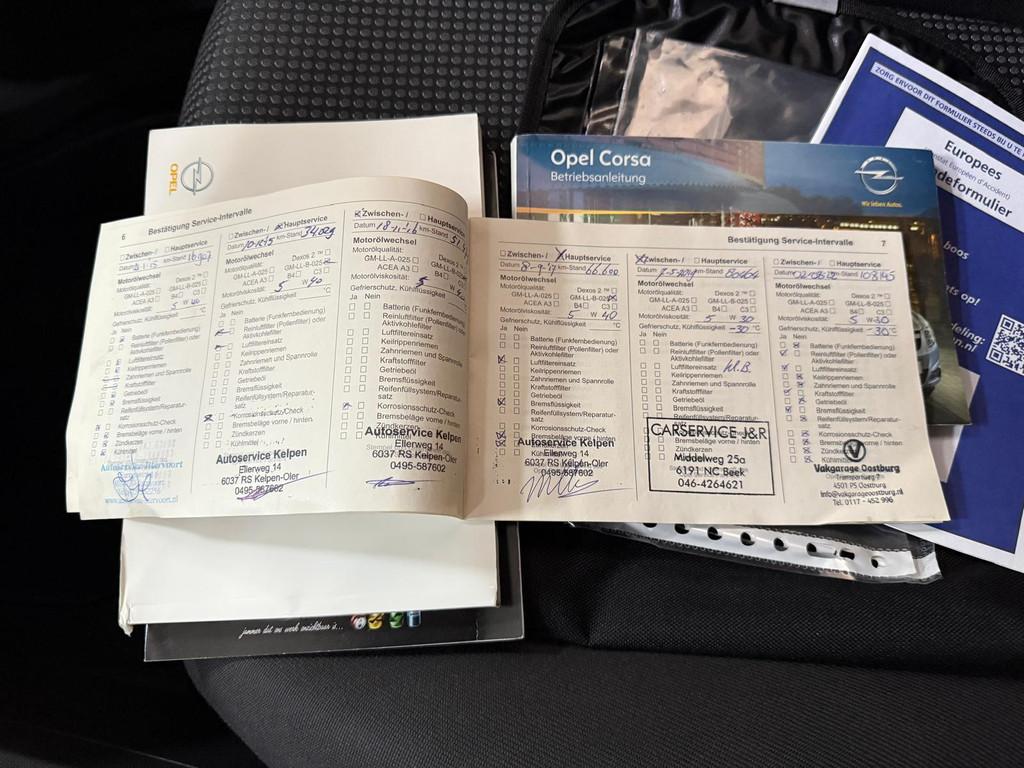 OPEL
Opel Corsa
Betriebsanleitung
Wir leben Autos.
ZORG ERVOOR DIT FORMULIER STEEDS BIJ U TE
Europees
(Constat Européen d'Accident)
deformulier
boos
ats op!
deling:
n.nl
6 Bestätigung Service-Intervalle
Zwischen- / Hauptservice
Datum km-Stand
Motorölwechsel
Motorölqualität:
Dexos 2 ™
GM-LL-A-025 GM-LL-B-025
ACEA A3 B4 C3
Motorviskosität: 5 W 40
Gefrierschutz, Kühlflüssigkeit °C
Ja Nein
Batterie (Funkfernbedienung)
Reinluftfilter (Pollenfilter) oder
Aktivkohlefilter
Luftfiltereinsatz
Keilrippenriemen
Zahnriemen und Spannrolle
Kraftstofffilter
Getriebeöl
Bremsflüssigkeit
Reifenfüllsystem/Reparatur-
satz
Korrosionsschutz-Check
Bremsbeläge vorne / hinten
Zündkerzen
Kühlmittel
Zwischen- / Hauptservice
Datum km-Stand 34029
Motorölwechsel
Motorölqualität:
Dexos 2 ™
GM-LL-A-025 GM-LL-B-025
ACEA A3 B4 C3
Motorölviskosität: 5 W 40
Gefrierschutz, Kühlflüssigkeit °C
Ja Nein
Batterie (Funkfernbedienung)
Reinluftfilter (Pollenfilter) oder
Aktivkohlefilter
Luftfiltereinsatz
Keilrippenriemen
Zahnriemen und Spannrolle
Kraftstofffilter
Getriebeöl
Bremsflüssigkeit
Reifenfüllsystem/Reparatur-
satz
Korrosionsschutz-Check
Bremsbeläge vorne / hinten
Zündkerzen
Autoservice Kelpen
Ellerweg 14
6037 RS Kelpen-Oler
0495-587602
Zwischen- / Hauptservice
Datum 18-11-16 km-Stand
Motorölwechsel
Motorölqualität:
Dexos 2 ™
GM-LL-A-025 GM-LL-B-025
ACEA A3 B4 C3
Motorölviskosität: 5 W
Gefrierschutz, Kühlflüssigkeit °C
Ja Nein
Batterie (Funkfernbedienung)
Reinluftfilter (Pollenfilter) oder
Aktivkohlefilter
Luftfiltereinsatz
Keilrippenriemen
Zahnriemen und Spannrolle
Kraftstofffilter
Getriebeöl
Bremsflüssigkeit
Reifenfüllsystem/Reparatur-
satz
Korrosionsschutz-Check
Bremsbeläge vorne / hinten
Zündkerzen
Autoservice Kelpen
Ellerweg 14
6037 RS Kelpen-Oler
0495-587602
Bestätigung Service-Intervalle 7
Zwischen- / Hauptservice
Datum 8-9-17 km-Stand 66.600
Motorölwechsel
Motorölqualität:
Dexos 2 ™
GM-LL-A-025 GM-LL-B-025
ACEA A3 B4 C3
Motorölviskosität: 5 W 40
Gefrierschutz, Kühlflüssigkeit °C
Ja Nein
Batterie (Funkfernbedienung)
Reinluftfilter (Pollenfilter) oder
Aktivkohlefilter
Luftfiltereinsatz
Keilrippenriemen
Zahnriemen und Spannrolle
Kraftstofffilter
Getriebeöl
Bremsflüssigkeit
Reifenfüllsystem/Reparatur-
satz
Korrosionsschutz-Check
Bremsbeläge vorne / hinten
Zündkerzen
Autoservice Kelpen
Ellerweg 14
6037 RS Kelpen-Oler
0495-587602
Zwischen- / Hauptservice
Datum km-Stand 80464
Motorölwechsel
Motorölqualität:
Dexos 2 ™
GM-LL-A-025 GM-LL-B-025
ACEA A3 B4 C3
Motorölviskosität: 5 W 30
Gefrierschutz, Kühlflüssigkeit -30 °C
Ja Nein
Batterie (Funkfernbedienung)
Reinluftfilter (Pollenfilter) oder
Aktivkohlefilter
Luftfiltereinsatz
Keilrippenriemen
Zahnriemen und Spannrolle
Kraftstofffilter
Getriebeöl
Bremsflüssigkeit
Reifenfüllsystem/Reparatur-
CARSERVICE J&R
Middelweg 25a
6191 NC Beek
046-4264621
Zwischen- / Hauptservice
Datum km-Stand
Motorölwechsel
Motorölqualität:
Dexos 2 ™
GM-LL-A-025 GM-LL-B-025
ACEA A3 B4 C3
Motorölviskosität: 5 W 30
Gefrierschutz, Kühlflüssigkeit -30 °C
Ja Nein
Batterie (Funkfernbedienung)
Reinluftfilter (Pollenfilter) oder
Aktivkohlefilter
Luftfiltereinsatz
Keilrippenriemen
Zahnriemen und Spannrolle
Kraftstofffilter
Getriebeöl
Bremsflüssigkeit
Reifenfüllsystem/Reparatur-
satz
Korrosionsschutz-Check
Bremsbeläge vorne / hinten
Zündkerzen
Kühlmittel
Vakgarage Oostburg
Transportweg 7
4501 PS Oostburg
info@vakgarageoostburg.nl
Tel. 0117 - 452 996
jammer dat ons werk onzichtbaar is...